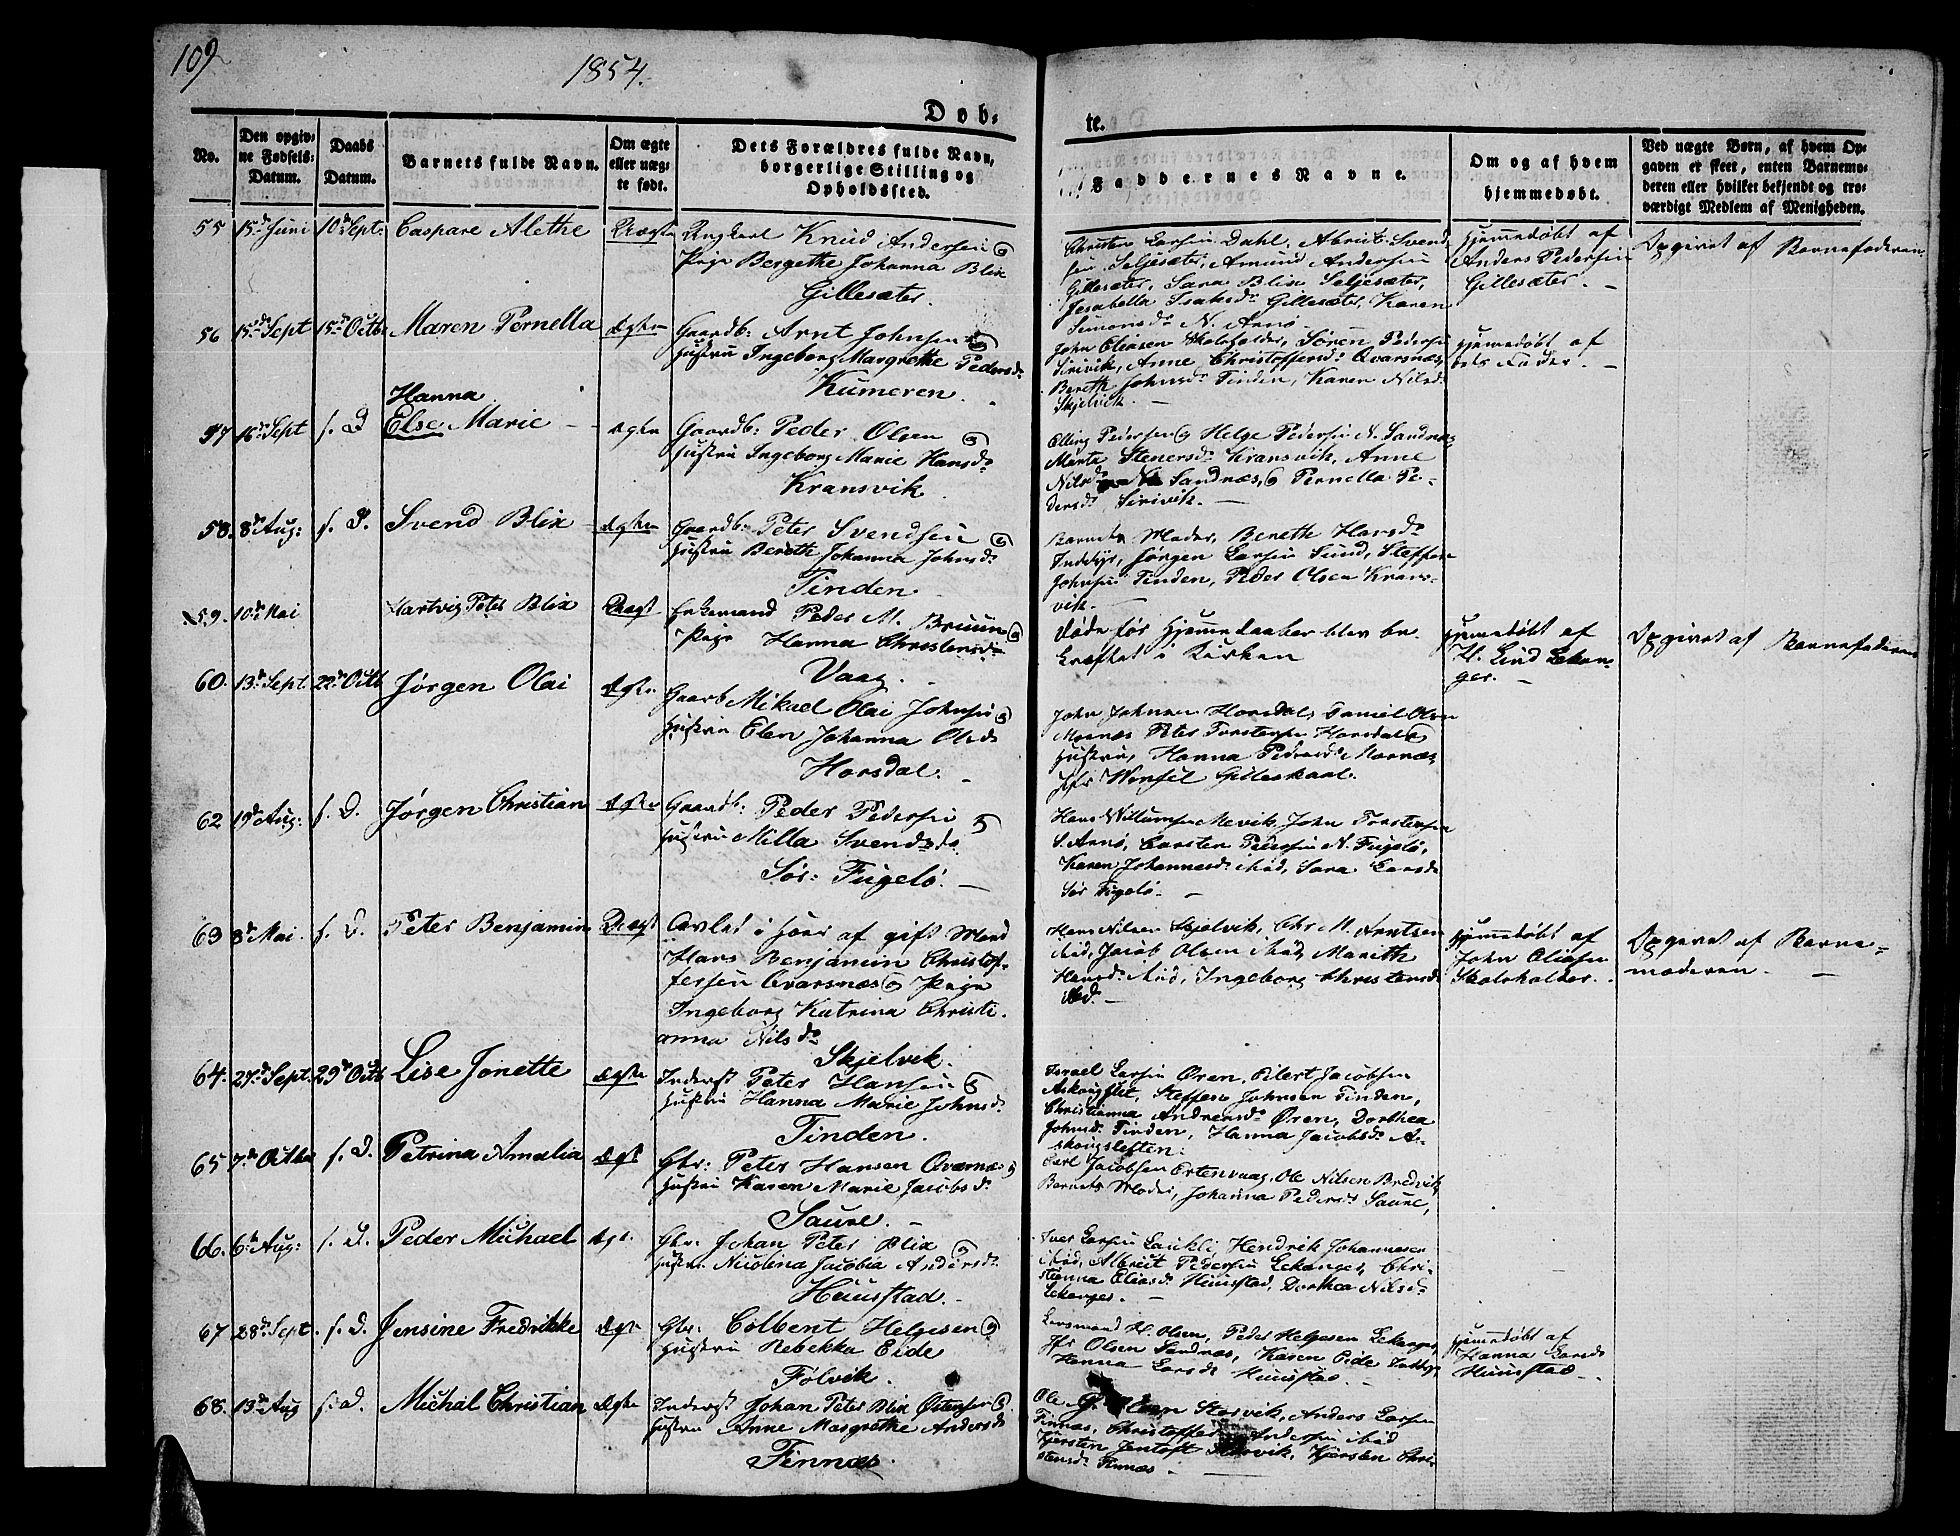 109
1854.
Døb-
te.
No.
Den opgiv-
ne Fødsels-
Datum.
Daabs
Datum.
Barnets fulde Navn.
Om ægte
eller uæg-
te født.
Dets Forældres fulde Navn,
borgerlige Stilling og
Opholdssted.
Faddernes Navne.
Om og af hvem
hjemmedøbt.
Ved uægte Børn, af hvem Op-
gaven er skeet, enten Barnemo-
deren eller hvilket bekjendt og tro-
værdigt Medlem af Menigheden.
55 15de Juni 10de Sept. Caspare Alethe Uægte
Ungkarl Knud Andersen og
Pige Bergethe Johanna Blix
Gillesæter.
Christen Larsen Dahl, Abrist Svend-
sen Seljesæter, Amund Andersen
Gillesæter, Sara Blix Seljesæter,
Jesabella Isaksdr Gillesæter, Karen
Simonsdr N. Arnø.
Hjemmedøbt af
Anders Pedersen
Gillesæter. -
Opgivet af Barnefaderen
56 15de Sept 15de Octb Maren Pernella Ægte
Gaardb: Arnt Johnsen og
Hustru Ingeborg Margrethe Pedersdr
Kumeren.
John Eliasen Skoleholder, Søren Pedersen
Sirivik, Anne Christoffersdr Qvarsnæs,
Bereth Johnsdr Tinden, Karen Nilsdr
Skjelvik. -
Hjemmedøbt af
dets Fader. -
57 16de Sept s. D
Hanna
Else Marie - ægte
Gaardb: Peder Olsen og
Hustru Ingeborg Marie Hansdr
Kransvik
Elling Pedersen og Helge Pedersen N. Sandnæs
Marta Stenersdr Kransvik, Anne
Nilsdr Sandnæs, og Pernella Pe-
dersdr Sirivik. -
58. 8de Aug: s. D. Svend Blix Ægte
Gaardb: Peter Svendsen og
Hustru Berethe Johanna Johnsdr
Tinden
Barnets Moder, Bereth Hansdr
Indedyr, Jørgen Larsen Sund, Steffen
Johnsen Tinden, Peder Olsen Krans-
vik. -
59. 10de Mai Hartvig Peter Blix Uægt
Enkemand Peder M. Bruun og
Pige Hanna Christensdr
Vaag.
Døde før Hjemmedaaben blev be-
kræftet i Kirken
Hjemmedøbt af
H. Lind Lekan-
ger. -
Opgivet af Barnefaderen
60. 13de Sept. 22de Octb Jørgen Olai Ægte
Gaardb Mikael Olai Johnsen og
Hustru Elen Johanna Olsdr
Horsdal. -
John Johnsen Horsdal, Daniel Olsen
Mornæs Peter Torstensen Horsdal og
Hustru, Hanna Pedersdr Mornæs,
Jfr Wensel Gilleskaal.
62 19de Aug: s. D. Jørgen Christian Ægte
Gaardb: Peder Pedersen og
Hustru Milla Svendsdr
Sør: Fugelø. -
Hans Willumsen Mevik, John Torstensen
S. Arnø, Carsten Pedersen N. Fugelø,
Karen Johannesdr ibid, Sara Larsdr
Sør Fugelø. -
63 8de Mai. s. D. Peter Benjamin Uægt
Avlet i hoer af gift Mand
Hans Benjamin Christof-
fersen Qvarsnæs og Pige
Ingeborg Katrina Christi-
anna Nilsdr
Skjelvik.
Hans Nilsen Skjelvik, Chr M. Arntsen
ibid, Jacob Olsen ibid, Marith
Hansdr ibid, Ingeborg Christensdr
ibid. -
Hjemmedøbt af
John Eliasen
Skoleholder.
Opgivet af Barne-
moderen. -
64. 27de Sept. 29de Octb Lise Jonette Ægte
Inderst Peter Hansen og
Hustru Hanna Marie Johnsdr
Tinden.
Israel Larsen Øren, Eilert Jacobsen
Askougflet, Steffen Johnsen Tinden,
Christianna Andreasdr Øren, Dorthea
Johnsdr Tinden, Hanna Jacobsdr A-
skougsletten.
65 7de Octbr s. D. Petrina Amalia Ægt
Gbr: Peter Hansen Qvarnæs og
Hustru Karen Marie Jacobsdr
Saure. -
Carl Jacobsen Ertenvaag, Ole Nilsen Bredvik,
Barnets Moder, Johanna Pedersdr Saure,
66. 6de Aug: s. D. Peder Michael Ægt.
Gbr. Johan Peter Blix og
Hustru Nicolina Jacobia Andersdr
Huusstad. -
Iver Larsen Laukli, Hendrik Johannesen
ibid, Albreit Pedersen Lekanger, Chri-
stianna Eliasdr Huusstad, Dorthea Nilsdr
Lekanger. -
67 28de Sept. s. D. Jensine Fredrikke Ægt
Gbr. Colbent Helgesen og
Hustru Rebekka Eide
Følvik.
Lensmand H. Olsen, Peder Helgesen Lekanger,
Jfr Olsen Sandnæs, Karen Eide
Hanna Larsdr Huusstad. -
Hjemmedøbt af
Hanna Larsdr
Huusstad -
68. 13de Aug s. D. Michal Christian Ægte
Inderst Johan Peter Blix Østensen og
Hustru Anne Margrethe Andersdr
Finnæs
Ole Storvik, Anders Larsen
Finnæs, Christoffer Andersen ibid
Kjersten Jentoft Storvik, Kjersten Chri-
stensdr Finnæs. -